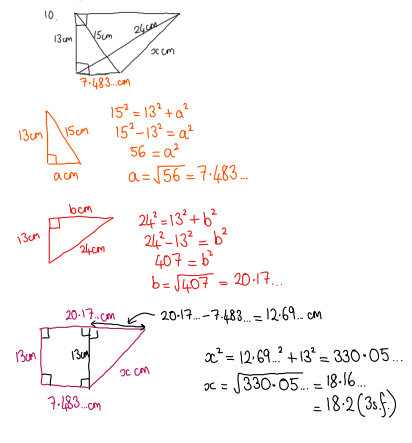 10.
13cm
15cm
24cm
x cm
7.483...cm
13cm
15cm
a cm
15² = 13² + a²
15² - 13² = a²
56 = a²
a = √56 = 7.483...
b cm
13cm
24cm
24² = 13² + b²
24² - 13² = b²
407 = b²
b = √407 = 20.17...
20.17...cm
20.17... - 7.483... = 12.69... cm
13cm
13cm
x cm
7.483...cm
x² = 12.69...² + 13² = 330.05...
x = √330.05... = 18.16...
= 18.2 (3s.f.)